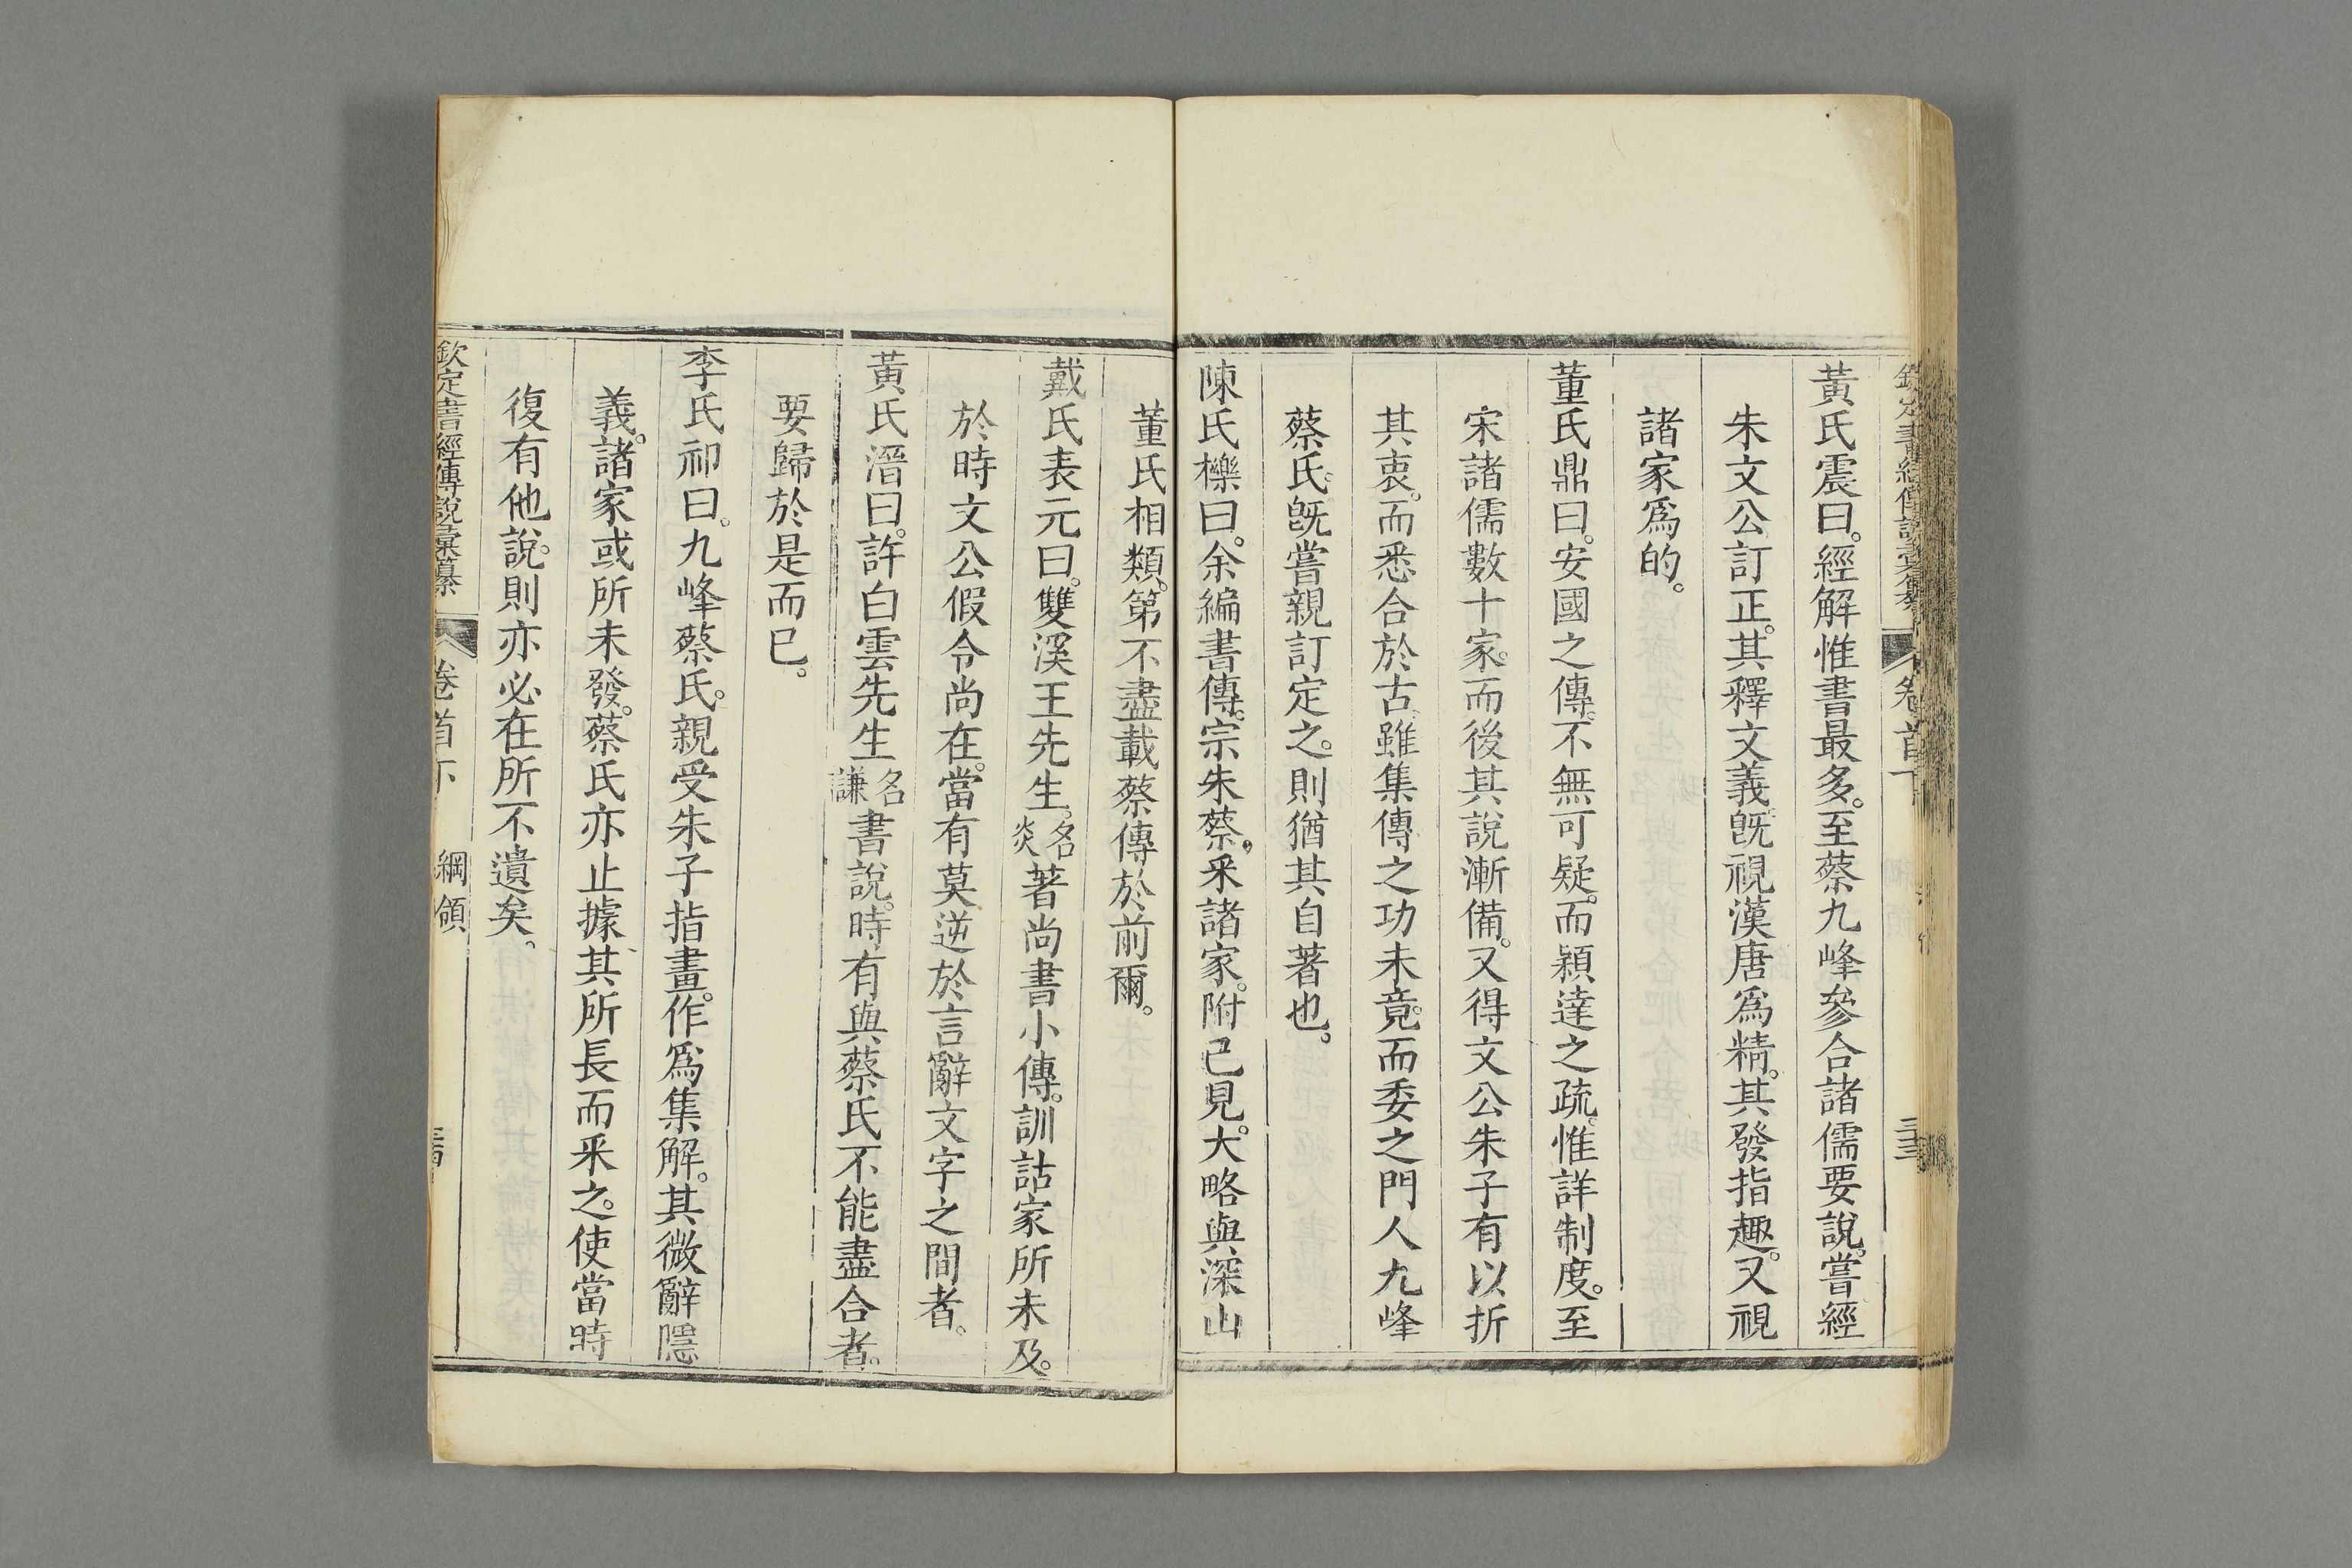 欽定書經傳說彙纂 卷首下
黃氏震曰。經解惟書最多。至蔡九峰參合諸儒要說。嘗經
朱文公訂正。其釋文義。旣視漢唐爲精。其發指趣。又視
諸家爲的。
董氏鼎曰。安國之傳。不無可疑。而穎達之疏。惟詳制度。至
宋諸儒數十家。而後其說漸備。又得文公朱子有以折
其衷。而悉合於古。雖集傳之功未竟。而委之門人九峰
蔡氏。旣嘗親訂定之。則猶其自著也。
陳氏櫟曰。余編書傳。宗朱蔡。采諸家。附己見。大略與深山
董氏相類。第不盡載蔡傳於前爾。
戴氏表元曰。雙溪王先生。名炎著尚書小傳。訓詁家所未及。
於時文公假令尚在。當有莫逆於言辭文字之間者。
黃氏溍曰。許白雲先生名謙書說。時有與蔡氏不能盡合者。
要歸於是而已。
李氏祁曰。九峰蔡氏。親受朱子指畫。作爲集解。其微辭隱
義。諸家或所未發。蔡氏亦止據其所長而采之。使當時
復有他說。則亦必在所不遺矣。
欽定書經傳說彙纂 卷首下 綱領